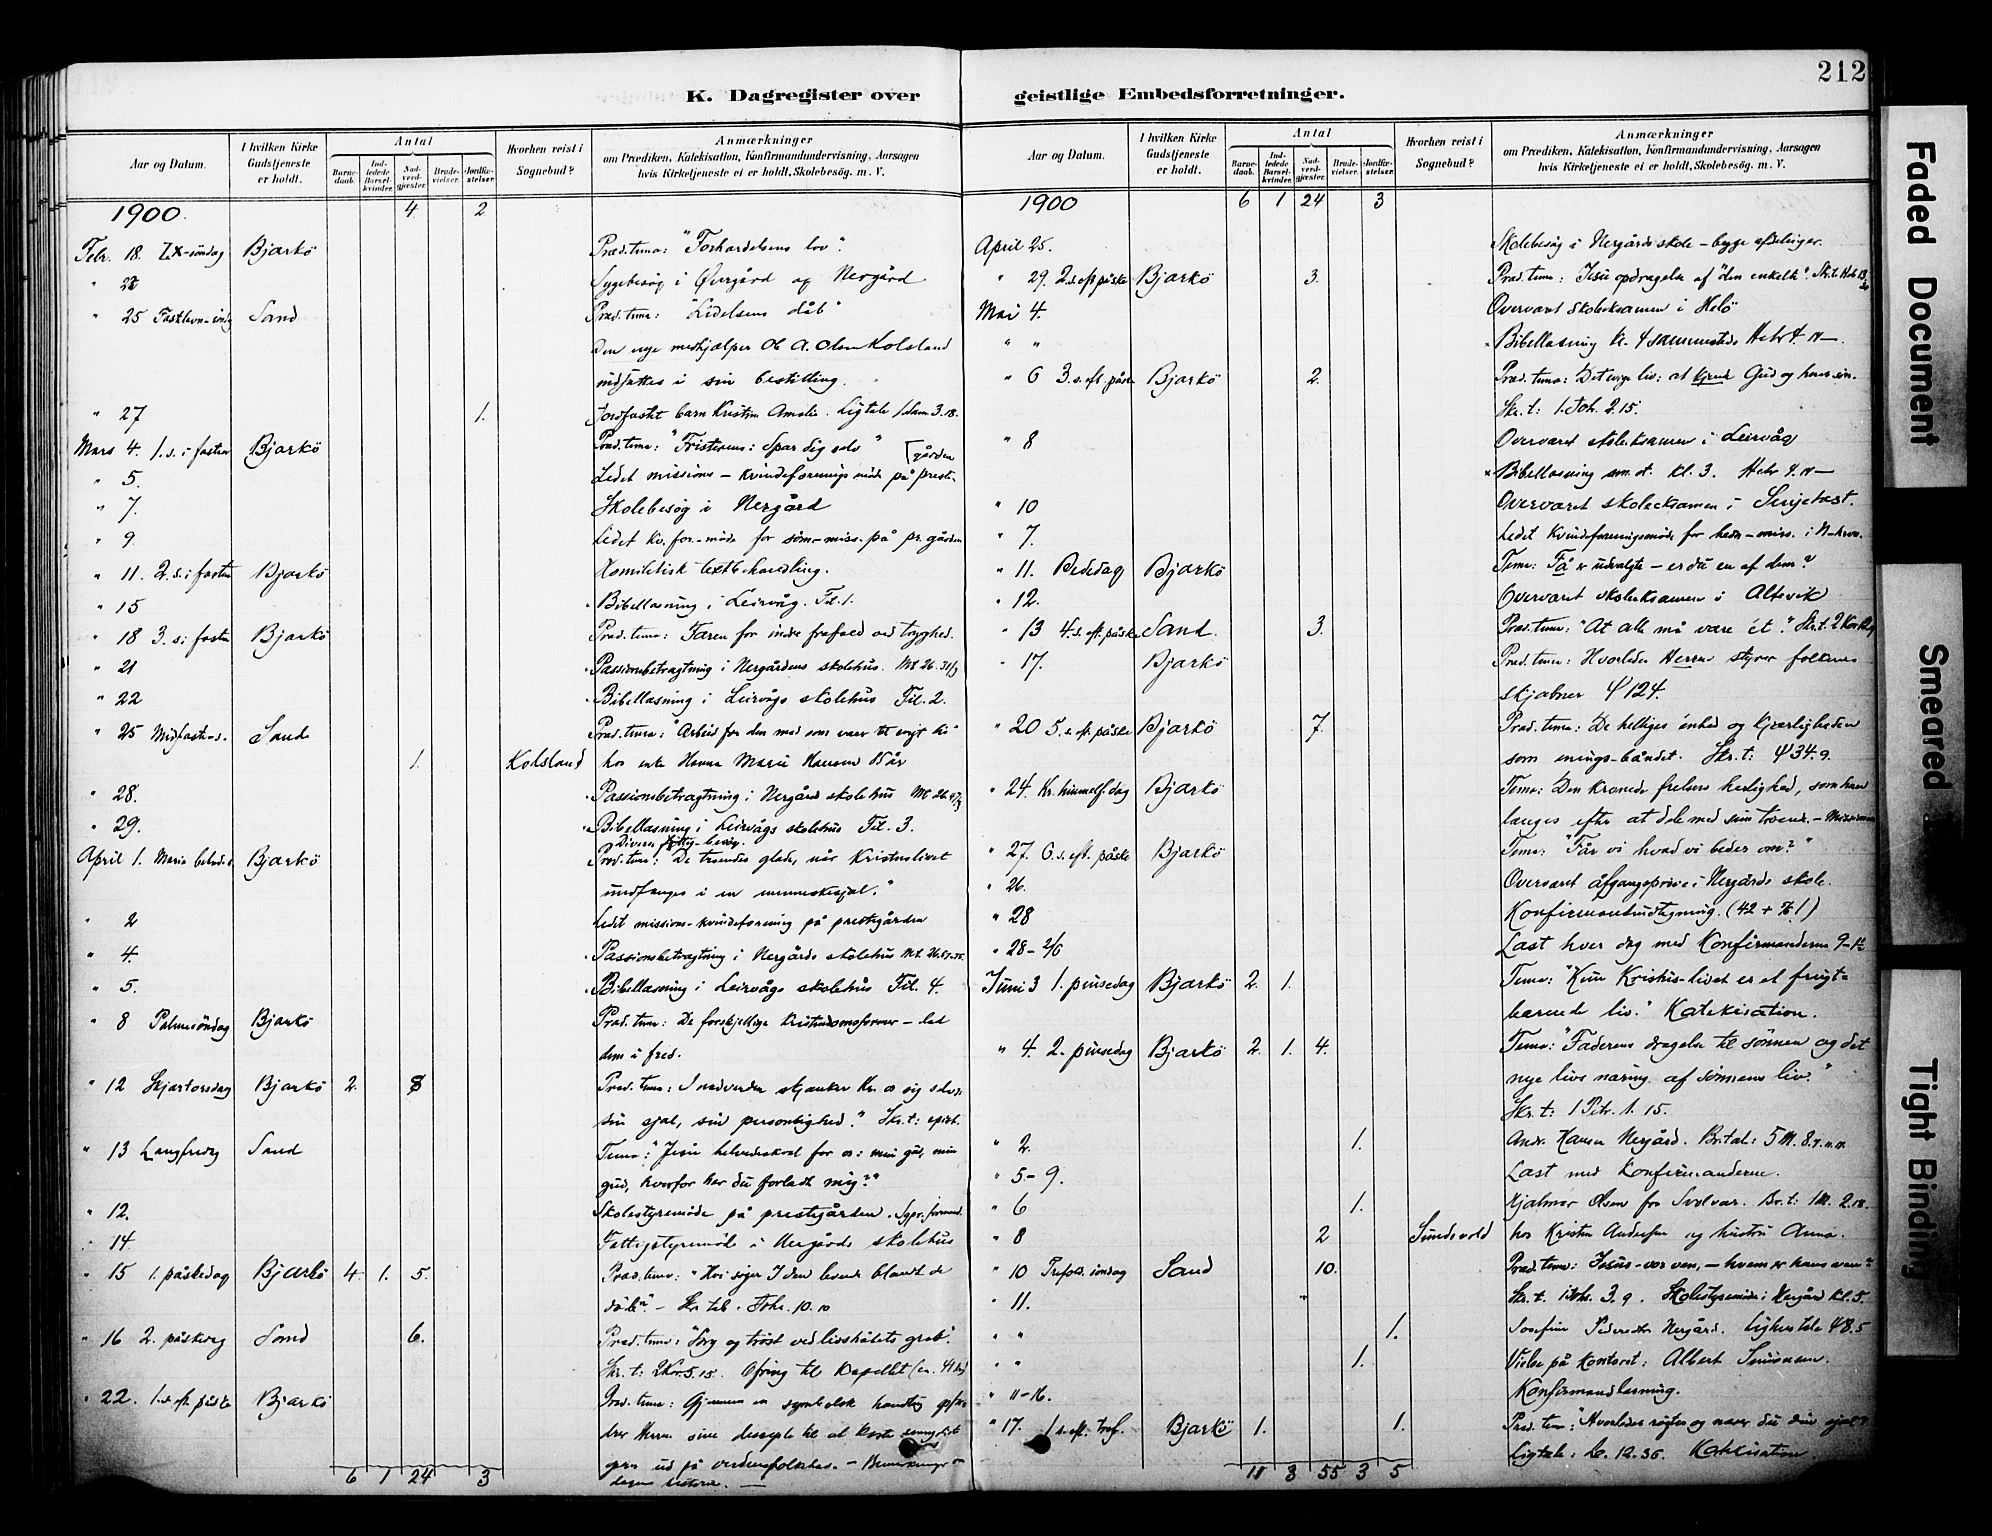 212
K. Dagregister over geistlige Embedsforretninger.
Aar og Datum.
I hvilken Kirke Gudstjeneste er holdt.
Antal
Barnedaab.
Indledede Barselkvinder.
Nadverdgjæster.
Brudevielser.
Jordfæstelser.
Hvorhen reist i Sognebud?
Anmærkninger
om Prædiken, Katekisation, Konfirmandundervisning, Aarsagen
hvis Kirketjeneste ei er holdt, Skolebesøg. m. V.
1900. 4 2
Febr. 18. Bjarkö Præd. tema: "Forhærdelsens lov".
Sygebesög i Övergård og Nergård
" 25 Sand Præd. tema: "Lidelsens dåb"
Den nye medhjælper Ol. A. Olsen Kolsland
indsattes i sin bestilling.
" 27 1. Jordfæstet barn Kristin Amalie. Ligtale 1 Sam 3.18.
Mars 4. 1.s.i fasten Bjarkö Præd. tema: "Fristerens: Spar dig selv"
" 5. Ledet missions-kvindeforenings möde på prestegården
" 7. Skolebesög i Nergård
" 9. Ledet kv. for.-möde for söm.-miss. på pr.gården
" 11. 2.s.i fasten Bjarkö Homiletisk textbehandling.
" 15 Bibellæsning i Leirvåg. Fil. 1.
" 18 3.s.i fasten Bjarkö Præd. tema: Faren for indre frafald ved tryghed.
" 21 Passionsbetragtning i Nergårdens skolehus. Mt 26.
" 22 Bibellæsning i Leirvågs skolehus Fil. 2.
" 25 Midfaste-s. Sand Præd. tema: "Arbeid for den mad som varer til evigt liv"
1. Kolsland hos enke Hanna Marie Hansen
" 28. Passionsbetragtning i Nergårds skolehus Mt 26.
" 29. Bibellæsning i Leirvågs skolehus Fil. 3.
April 1. Maria Bjarkö Præd. tema: De troendes glæde, når Kristuslivet
undfanges i en menneskesjæl."
" 2 Ledet missions-kvindeforening på prestegården
" 4. Passionsbetragtning i Nergårds skolehus Mt. 26.
" 5. Bibellæsning i Leirvågs skolehus Fil. 4.
" 8 Palmesöndag Bjarkö Præd. tema: De forskjellige kristendomsformer – lad
dem i fred.
" 12 Skjærtorsdag Bjarkö 2. 8 Præd. tema: I nadverden skjænker Kr. os sig selv:
sin sjæl, sin personlighed." Skr. t: epist.
" 13 Langfredag Sand Tema: "Jesu helvedeskval for os: min gud, min
gud, hvorfor har du forladt mig?"
" 12. Skolestyremöde på prestegården.
" 14. Fattigstyremöde i Nergårds skolehus
" 15 1. påskedag Bjarkö 4. 1. 5. Præd. tema: "Hvi söger I den levende blandt de
döde". – Skr. tal. Joh. 10.10
" 16 2. påskedag Sand 6. Præd. tema: "Sorg og tröst ved livshåbets grav".
Skr. t: 2 Kor. 5.15. Ofring til kapellet
" 22. 1.s.eft. påske Bjarkö Præd. tema: Gjennem en symbolsk handling
drer Herren sine disciple til at
gøre ud på verdensfolkhav. –
dagens historie. –
6 1 24 3
1900 6 1 24 3
April 25. Skolebesög i Nergårds skole – begge afdelinger.
" 29. 2.s.eft påske Bjarkö 3. Præd. tema: Jesu opdragelse af "den enkelte".
Mai 4. Overværet skoleeksamen i Helö
" " Bibellæsning kl. 4 sammesteds Hebr 4.
" 6 3.s.eft. påske Bjarkö 2. Præd. tema: Det evige liv: at kjende Gud og hans sön.
Skr. t: 1. Joh. 2.15.
" 8 Overværet skoleeksamen i Leirvåg
Bibellæsning kl. 3. Hebr 4.
" 10 Overværet skoleeksamen i
" 7. Ledet kvindeforeningsmöde for
" 11. Bededag Bjarkö Tema: Få er udvalgte – er du en af dem?
" 12. Overværet skoleeksamen i Altevik
" 13 4.s.eft. påske Sand. 3. Præd. tema: "At alle må være ét". Skr. t. 2 Kor
" 17. Bjarkö Præd. tema: Hvorledes Herren styrer folkenes
skjæbner ψ 124.
" 20 5.s.eft. påske Bjarkö 7. Præd. tema: De helliges enhed og kjærligheden
som enings-båndet. Skr. t: ψ 34.9.
" 24. Kr. himmelf. dag Bjarkö Tema: Den kronede frelsers herlighed, som han
længes efter at dele med sine troende. –
" 27. 6.s.eft. påske Bjarkö Tema: "Får vi hvad vi beder om?"
" 26. Overværet afgangspröve i Nergårds skole.
" 28 Konfirmandudtegning. (42 +
" 28 – 2/6 Læst hver dag med Konfirmanderne 9–12
Juni 3 1. pinsedag Bjarkö 2. 1. Tema: "Kun Kristus-livet er et frugt-
bærende liv." Katekisation.
" 4. 2. pinsedag Bjarkö 2. 1. 4. Tema: "Faderens dragelse til sönnen og det
nye livs næring af sönnens liv."
Skr. t: 1 Petr. 1. 15.
" 2. 1. Andr. Hansen Nergård. Br. tal: 5 M. 8.
" 5–9. Læst med Konfirmanderne.
" 6 1. Hjalmar Olsen fra Svolvær. Br. t: 1 M. 2.18.
" 8 2 Sundsvold hos Kristen Andersen og hustru Anna.
" 10 Trefold. söndag Sand 10. Præd. tema: Jesus – vor ven, – hvem er hans ven?
" 11. Skr. t. 1 Joh. 3.9. Skolestyremöde i Nergård kl. 5.
" " 1. Josefine Pedersdtr Nergård. Ligtale
" " 1. Vielse på kontoret: Albert Simonsen.
" 11–16. Konfirmandlæsning.
" 17. 1 s.eft. tref. Bjarkö 1. 1. Præd. tema: "Hvorledes rögter og nærer du din sjæl?
Ligtale: Lc. 12.36. Katekisation
11 3 55 3 5
Faded Document
Smeared
Tight Binding